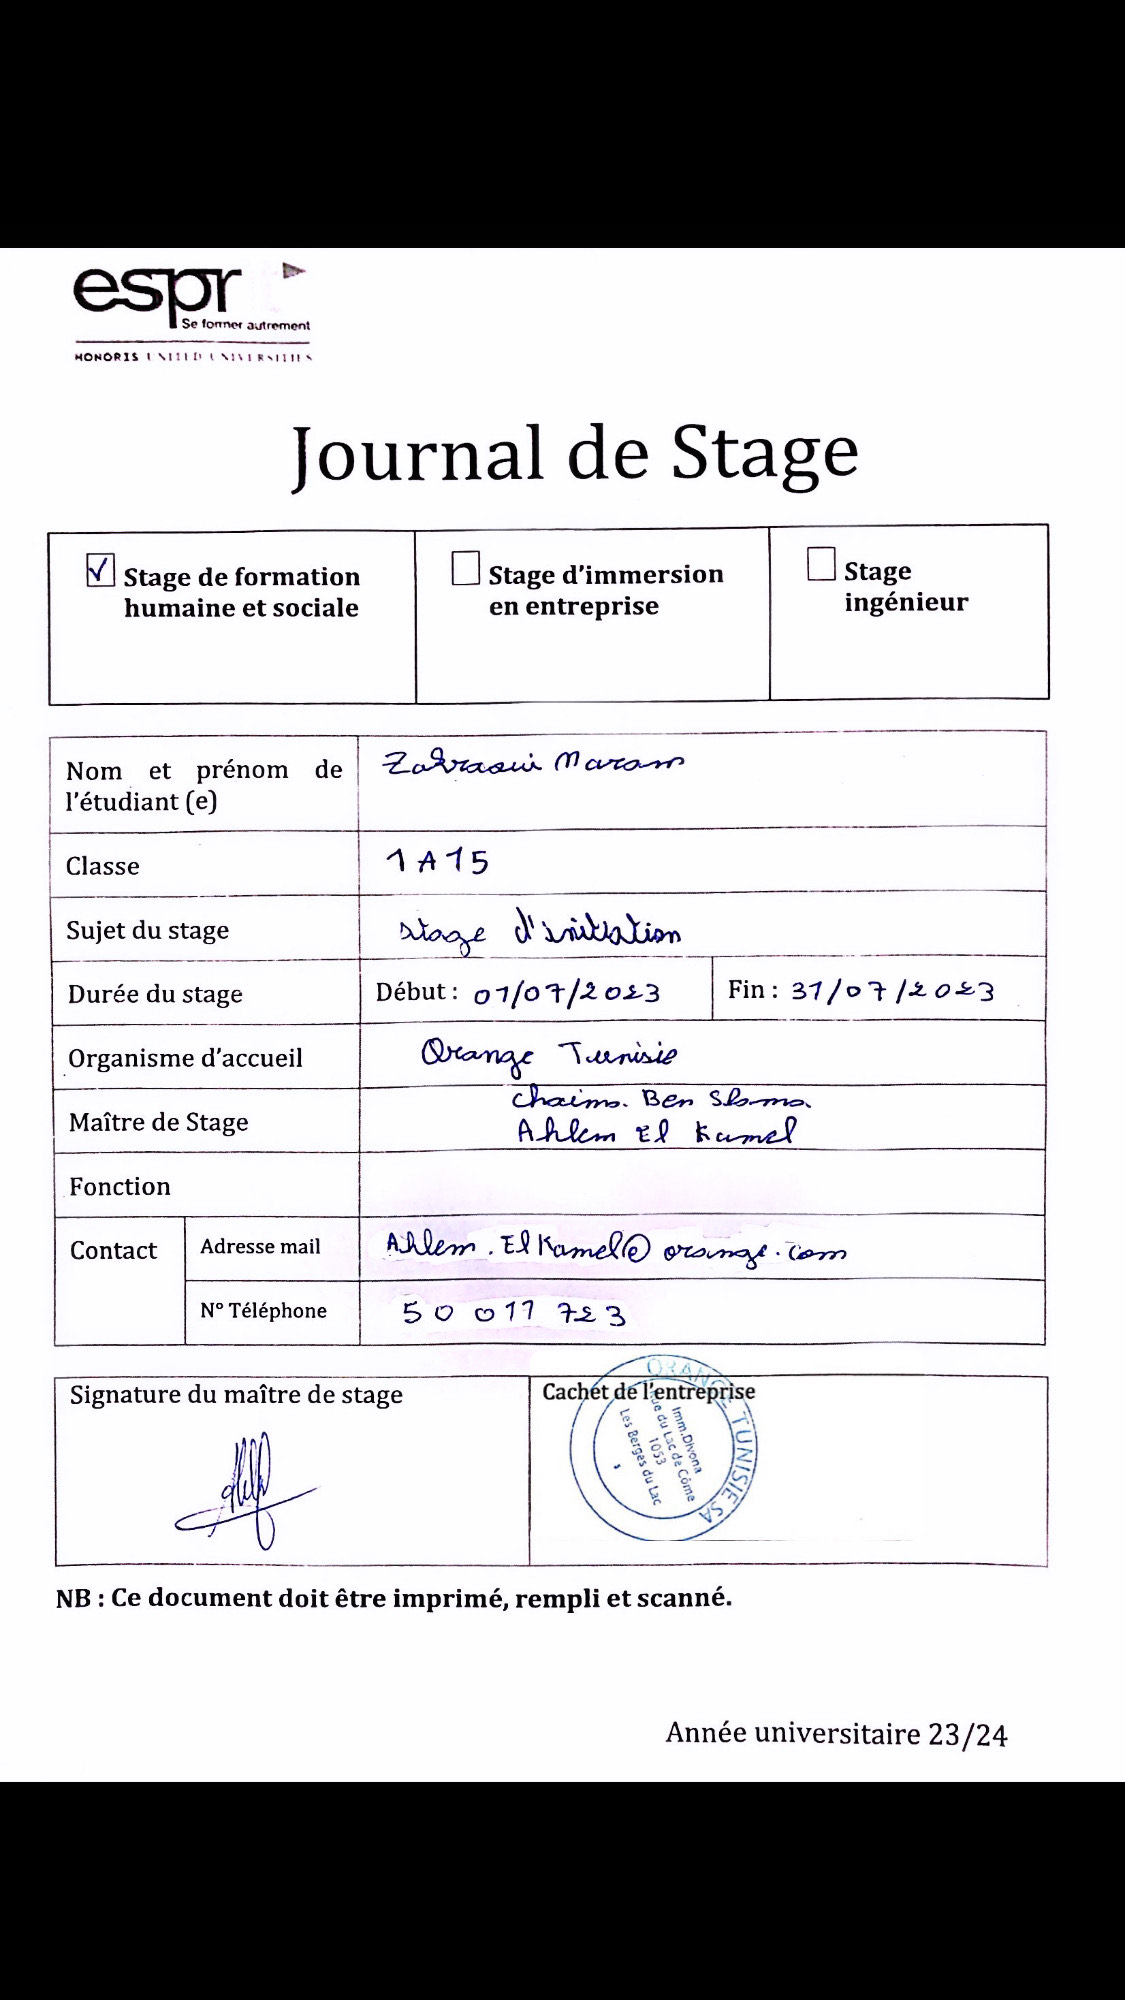 espr
Se former autrement
HONORIS UNITED UNIVERSITIES
Journal de Stage
Stage de formation
humaine et sociale
Stage d'immersion
en entreprise
Stage
ingénieur
Nom et prénom de
l'étudiant (e)
Zahraoui Maram
Classe
1A15
Sujet du stage
stage d'initiation
Durée du stage
Début : 01/07/2023
Fin : 31/07/2023
Organisme d'accueil
Orange Tunisie
Maître de Stage
Chaima Ben Slama
Ahlem El Kamel
Fonction
Contact
Adresse mail
Ahlem.ElKamel@orange.com
N° Téléphone
50 011 723
Signature du maître de stage
Cachet de l'entreprise
ORANGE TUNISIE SA
Imm.Divona
Rue du Lac de Côme
1053
Les Berges du Lac
NB : Ce document doit être imprimé, rempli et scanné.
Année universitaire 23/24